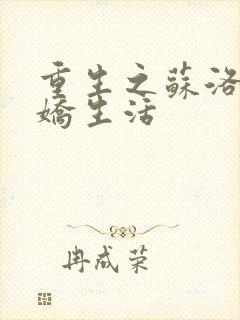 重生之蘇洛
嬌生活
冉成荣